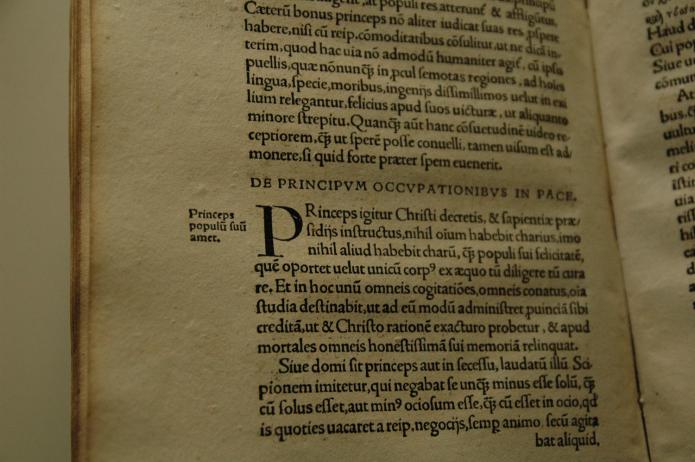 at populi res atterunť & affligūtur.
Cæterū bonus princeps nō aliter iudicat suas res ,pspere
habere,nisi cū reip.cōmoditatibus cōsulitur,ut ne dicā in-
terim,quod hac uia nō admodū humaniter agiť, cū ipsis
puellis,quæ nōnunq̄ꝫ in ,pcul semotas regiones , ad hoies
lingua,specie,moribus,ingenijs dissimillimos uelut in exi
lium relegantur,felicius apud suos uicturæ, ut aliquanto
minore strepitu. Quanq̄ꝫ aūt hanc cōsuetudinē uideo re-
ceptiorem,q̄ꝫ ut sperē posse conuelli, tamen uisum est ad/
monere,si quid forte præter spem euenerit.
DE PRINCIPVM OCCVPATIONIBVS IN PACE.
Princeps
populū suū
amet.
PRinceps igitur Christi decretis, & sapientiæ præ/
sidijs instructus,nihil oium habebit charius,imo
nihil aliud habebit charū, q̄ꝫ populi sui felicitatē,
quē oportet uelut unicū corpꝰ ex æquo tū diligere tū cura
re. Et in hoc unū omneis cogitatiōes,omneis conatus,oia
studia destinabit,ut ad eū modū administret ,puinciā sibi
creditā,ut & Christo rationē exacturo probetur , & apud
mortales omneis honestissimā sui memoriā relinquat.
Siue domi sit princeps aut in secessu, laudatū illū Sci-
pionem imitetur,qui negabat se unq̄ꝫ minus esse solū, q̄ꝫ
cū solus esset,aut minꝰ ociosum esse,q̄ꝫ cū esset in ocio,qd
is quoties uacaret a reip.negocijs,semp animo secū agita
bat aliquid,